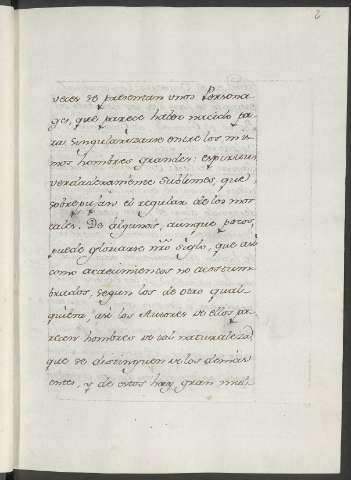 2
veces se presentan unos Persona-
ges, que parece haber nacido pa-
ra singularizarse entre los mis-
mos hombres grandes: espiritus
verdaderamente sublimes, que
sobrepujan el regular de los mor-
tales. De algunos, aunque pocos,
puede gloriarse nro Siglo, que asi
como acaecimientos no acostum-
brados, segun los de otro qual-
quiera, asi los Autores de ellos pa-
recen hombres de tal naturaleza,
que se distinguen de los demas
entes, y de estos hay gran mul-